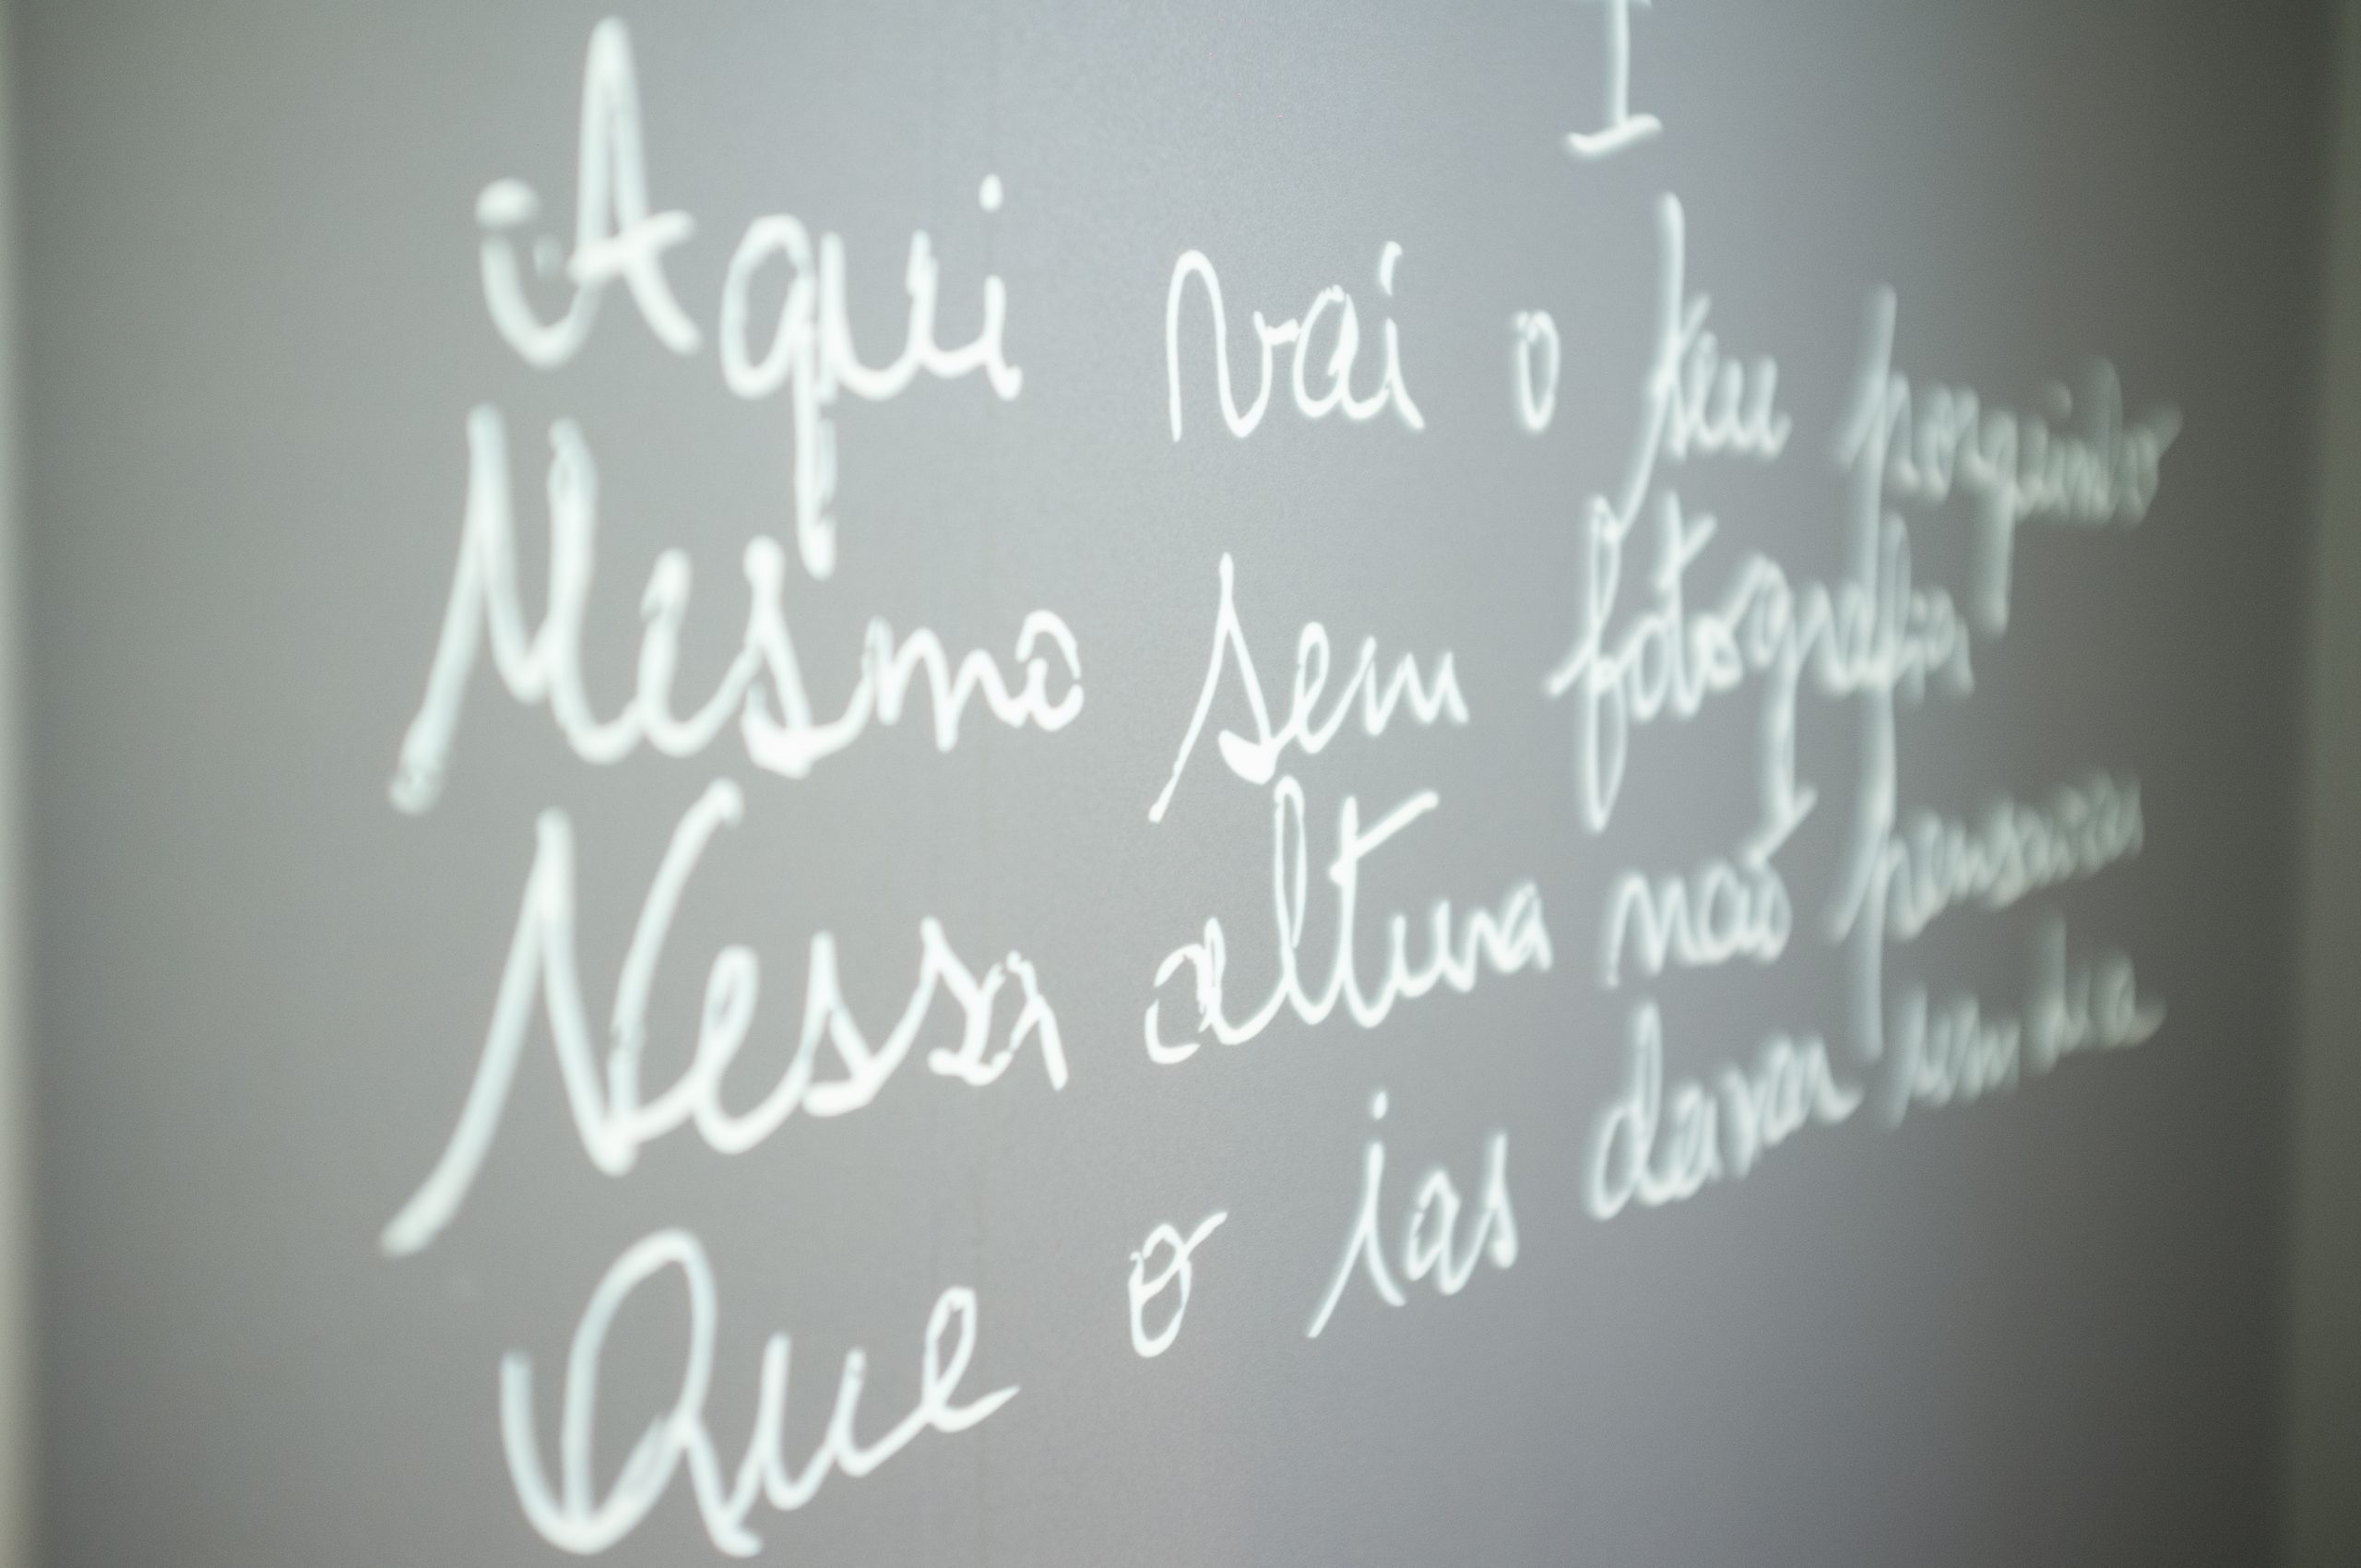 I
Aqui vai o seu porquinho
Mesmo sem fotografia
Nessa altura não pensava
Que o ias deixar um dia